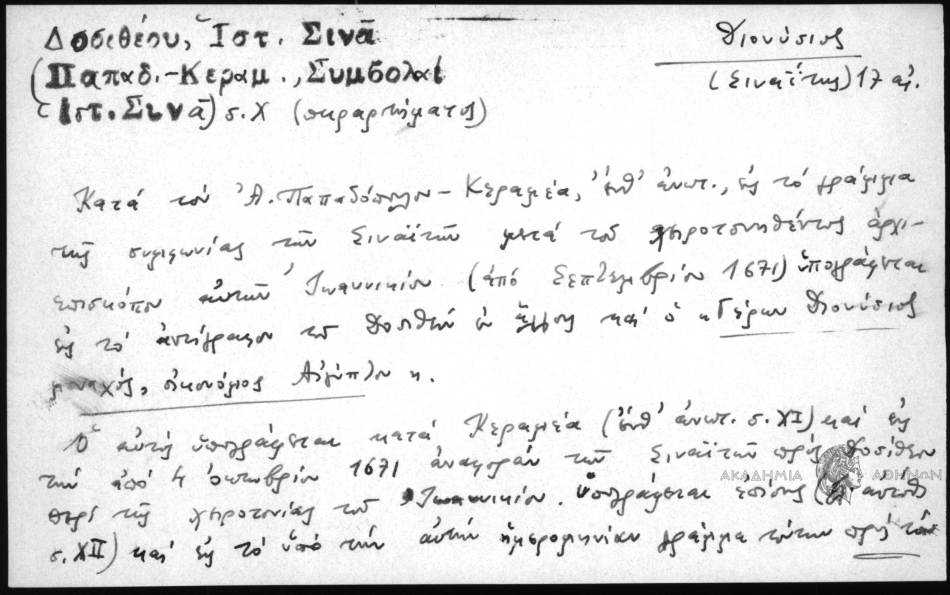 Δοσιθέου, Ἱστ. Σινᾶ
(Παπαδ.-Κεραμ., Συμβολαὶ
Ἱστ. Σινᾶ) σ. Χ (παραρτήματος)
Διονύσιος
(Σιναΐτης) 17 αἰ.
Κατά τόν Ἀ. Παπαδόπουλον-Κεραμέα, ἔνθ' ἀνωτ., εἰς τό γράμμα
τῆς συμφωνίας τῶν Σιναϊτῶν μετά τοῦ χειροτονηθέντος ἀρχι-
επισκόπου αὐτῶν Ἰωαννικίου (ἀπό Σεπτεμβρίου 1671) ὑπογράφεται
εἰς τό ἀντίγραφον τοῦ Δοσιθέου ἐν ἄλλοις καί ὁ «Γέρων Διονύσιος
μοναχός, οἰκονόμος Αἰγύπτου».
Ὁ αὐτός ὑπογράφεται κατά Κεραμέα (ἔνθ' ἀνωτ. σ. XI) καί εἰς
τήν ἀπό 4 Ὀκτωβρίου 1671 ἀναφοράν τῶν Σιναϊτῶν πρός Δοσίθεον
περί τῆς χειροτονίας τοῦ Ἰωαννικίου. Ὑπογράφεται ἐπίσης αὐτόθι
σ. XII) καί εἰς τό ὑπό τήν αὐτήν ἡμερομηνίαν γράμμα τούτων πρός τόν
ΑΚΑΔΗΜΙΑ ΑΘΗΝΩΝ